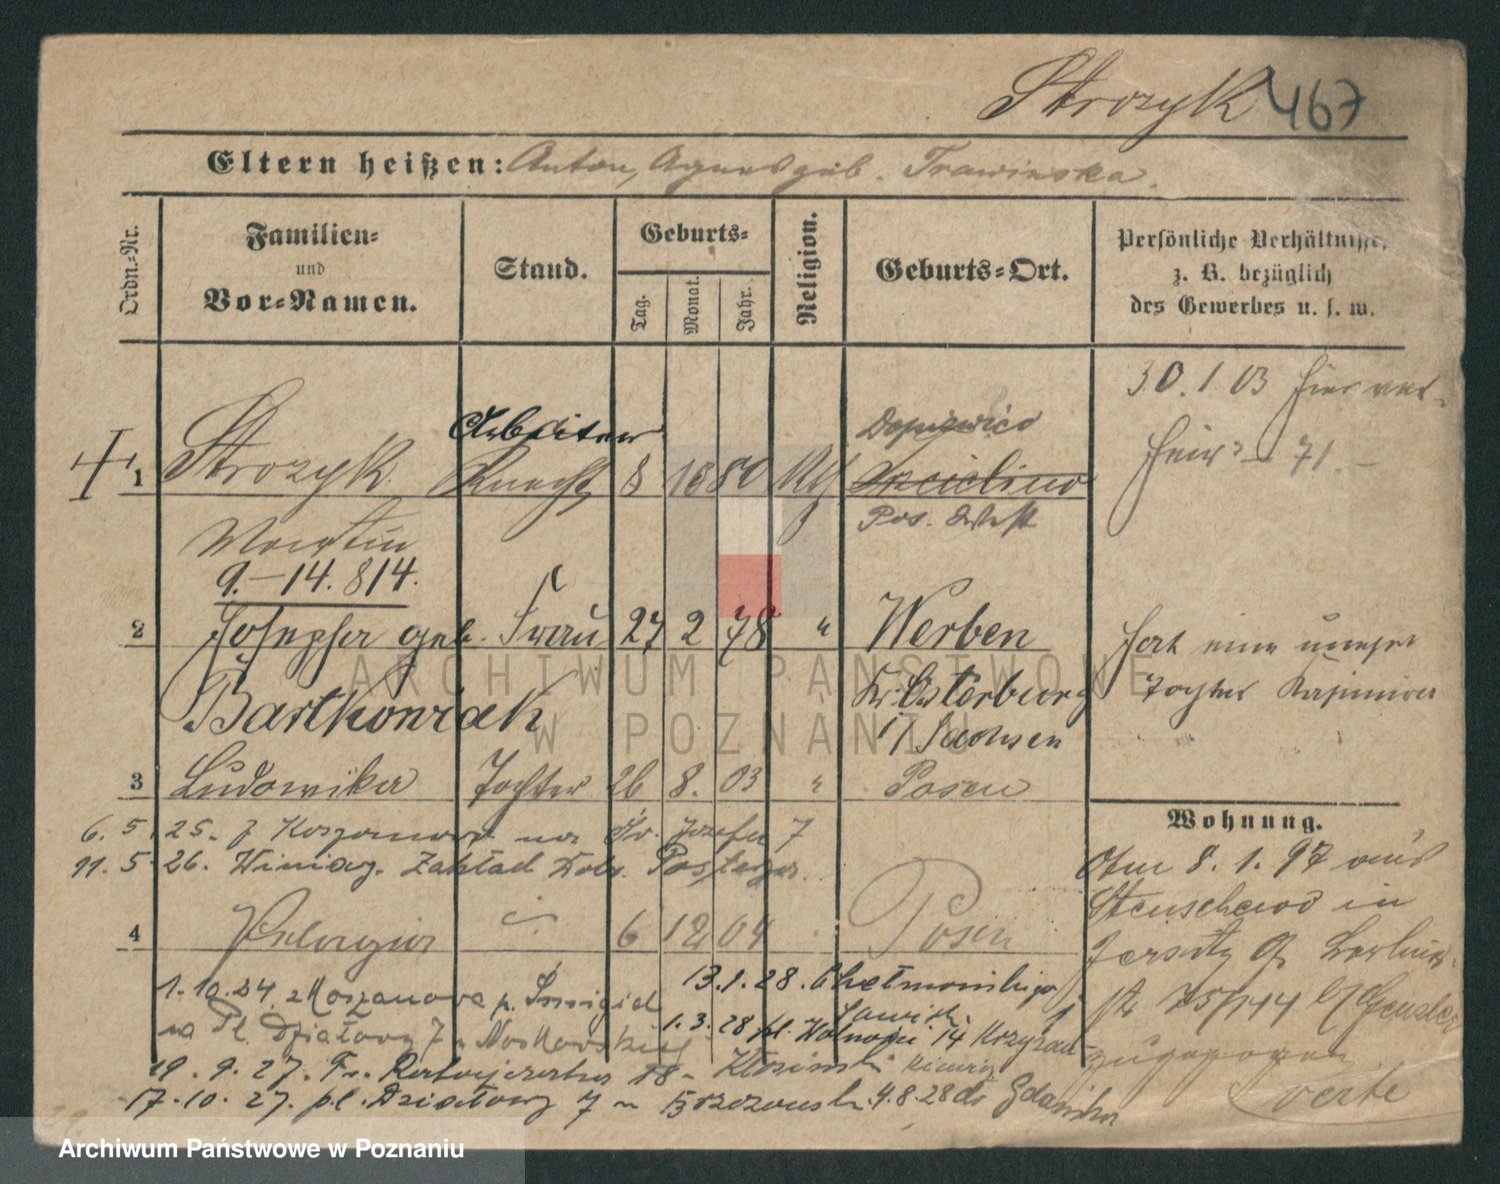 Strozyk 467
Eltern heißen: Anton, Agnes geb. Trawinska.
Ordn.-Nr.
Familien-
und
Vor-Namen.
Stand.
Geburts-
Tag.
Monat.
Jahr.
Religion.
Geburts-Ort.
Persönliche Verhältnisse,
z. B. bezüglich
des Gewerbes u. s. w.
30.1.03 hier ver-
heir. 71.
Arbeiter
1 Strozyk Knecht 8 10 80 Kth
Pos. West
Martin
9.–14.814.
2 Josepha geb. Frau 27 2 78 " Werben
Bartkowiak
Kr. Osterburg
i/ Sachsen
hat eine unehel
Tochter Kasimira
3 Ludowika Tochter 26 8. 03 " Posen
6.5.25. Św. Józefa 7
11.5.26. Winiary. Zakład
4 Pelagia 6 12 04 Posen
1.10.24 z Koszanowa p. Śmigiel
na Pl. Działowy 7 Noskowski
19.9.27. Fr. Ratajczaka 18
17.10.27. pl. Działowy 7
13.1.28. Chełmońskiego
1.3.28 pl. Wolności 14
4.8.28 do Gdańska
Wohnung.
8.1.97 aus
Stenschewo in
Jersitz
zugezogen
verte
ARCHIWUM PAŃSTWOWE
W POZNANIU
Archiwum Państwowe w Poznaniu